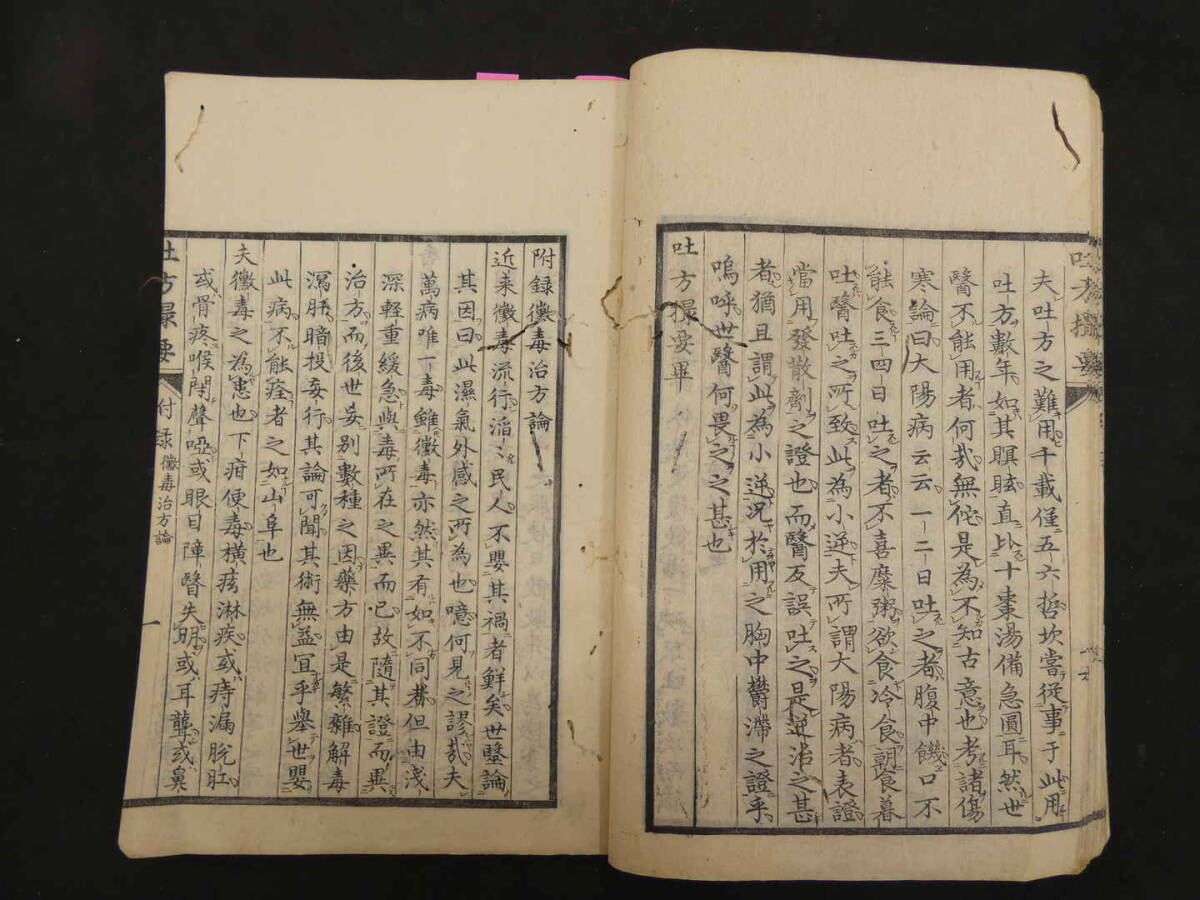 夫吐方之難用千載僅五六哲坎嘗從事于此用
吐方數年如其瞑眩直比十棗湯備急圓耳然世
醫不能用者何哉無佗是為不知古意也考諸傷
寒論曰大陽病云云一二日吐之者腹中饑口不
能食三四日吐之者不喜糜粥欲食冷食朝食暮
吐醫吐之所致此為小逆夫所謂大陽病者表證
當用發散劑之證也而醫反誤吐之是逆治之甚
者猶且謂此為小逆況於用之胸中鬱滯之證乎
嗚呼世醫何畏之之甚也
吐方撮要畢
附録黴毒治方論
近來黴毒流行滔〻民人不嬰其禍者鮮矣世毉論
其因曰此濕氣外感之所為也噫何見之謬哉夫
萬病唯一毒雖黴毒亦然其有如不同者但由淺
深輕重緩急與毒所在之異而已故隨其證而異
治方而後世妄別數種之因藥方由是繁雜解毒
瀉肝暗投妄行其論可聞其術無益宜乎舉世嬰
此病不能痊者之如山阜也
夫黴毒之為恙也下疳便毒横痃淋疾或痔漏脫肛
或骨疼喉閉聲啞或眼目障翳失明或耳聾或鼻
吐方撮要 付録 黴毒治方論 一